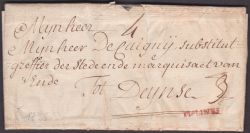 Mijnheer
Mijnheer De Quignij substitut
greffier der stede ende marquisaet van
Ende
Tot Deynse